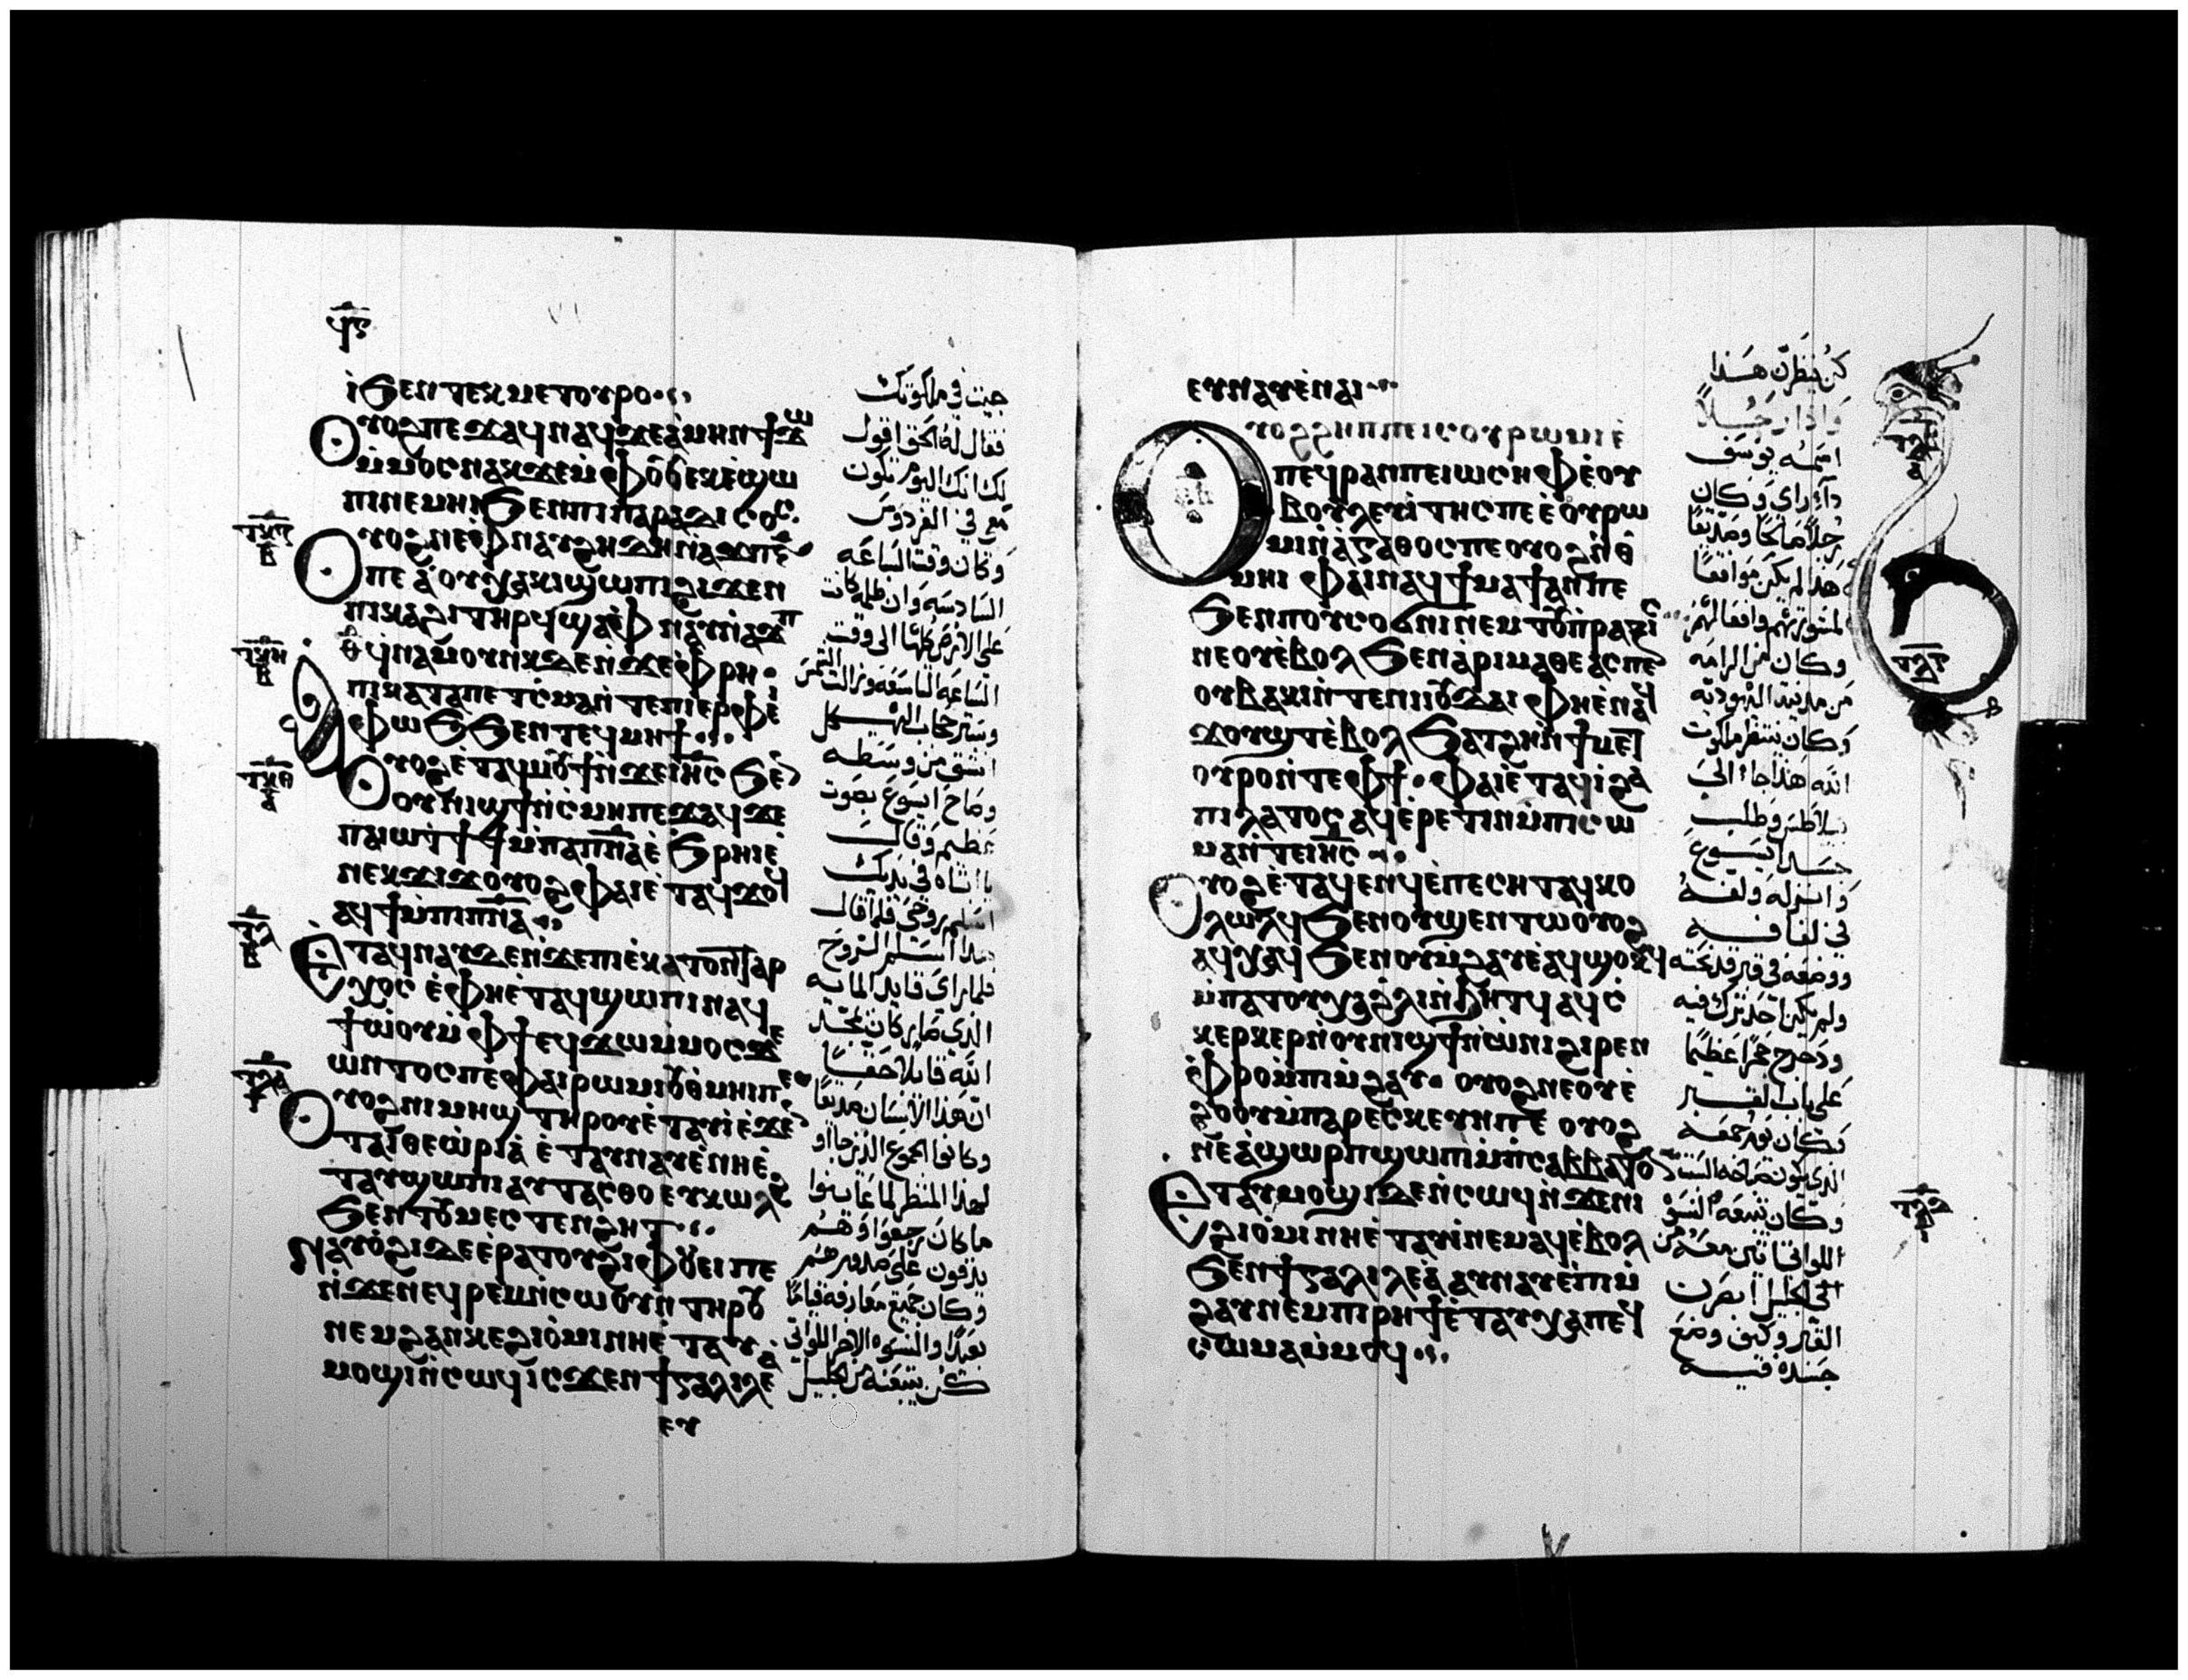 ϥⲋ
ⲓ̀ϧⲉⲛ ⲧⲉⲕⲙⲉⲧⲟⲩⲣⲟ
ⲟⲩⲟϩ ⲡⲉϫⲁϥ ⲛⲁϥ ϫⲉ ⲁ̀ⲙⲏⲛ ϯϫⲱ
ⲙ̀ⲙⲟⲥ ⲛⲁⲕ ϫⲉ ⲙ̀ⲫⲟⲟⲩ ⲉⲕⲉ̀ϣⲱ
ⲡⲓ ⲛⲉⲙⲏⲓ ϧⲉⲛ ⲡⲓⲡⲁⲣⲁⲇⲓⲥⲟⲥ
ⲟⲩⲟϩ ⲛⲉ ⲫⲛⲁⲩ ϩⲏⲇⲏ ⲛ̀ⲁϫⲡ ⲋ̄
ⲡⲉ ⲁ̀ ⲟⲩⲭⲁⲕⲓ ϣⲱⲡⲓ ϩⲓϫⲉⲛ
ⲡⲓⲕⲁϩⲓ ⲧⲏⲣϥ ϣⲁ ⲉ̀ⲫⲛⲁⲩ ⲛ̀ⲁϫⲡ
ⲑ̄ ϥⲛⲁⲙⲟⲩⲛⲕ ϫⲉ ⲛ̀ϫⲉ ⲫⲣⲏ
ⲡⲓⲕⲁⲧⲁⲡⲉⲧⲁⲥⲙⲁ ⲛ̀ⲧⲉ ⲡⲓⲉⲣⲫⲉⲓ
ⲫⲱϧ ϧⲉⲛ ⲧⲉϥⲙⲏϯ
ⲟⲩⲟϩ ⲉ̀ⲧⲁϥⲙⲟⲩϯ ⲛ̀ϫⲉ ⲓⲏⲥ ϧⲉⲛ
ⲟⲩⲛⲓϣϯ ⲛ̀ⲥⲙⲏ ⲡⲉϫⲁϥ ϫⲉ
ⲡⲁⲓⲱⲧ ϯϯ ⲙ̀ⲡⲁⲡⲛⲁ ⲉ̀ϧⲣⲏⲓ ⲉ̀
ⲛⲉⲕϫⲓϫ ⲟⲩⲟϩ ⲫⲁⲓ ⲉ̀ⲧⲁϥϫⲟϥ
ⲁϥϯ ⲙ̀ⲡⲓⲡⲛⲁ
ⲉ̀ⲧⲁϥⲛⲁⲩ ϫⲉ ⲛ̀ϫⲉ ⲡⲓⲉ̀ⲕⲁⲧⲟⲛⲧⲁⲣ
ⲭⲟⲥ ⲉ̀ⲫⲏ ⲉ̀ⲧⲁϥϣⲱⲡⲓ ⲛⲁϥ
ϯⲱ̀ⲟⲩ ⲙ̀ⲫϯ ⲉϥϫⲱ ⲙ̀ⲙⲟⲥ ϫⲉ
ⲱⲛⲧⲟⲥ ⲡⲉ ⲫⲁⲓⲣⲱⲙⲓ ⲟⲩⲑⲙⲏⲓ ⲡⲉ
ⲟⲩⲟϩ ⲛⲓⲙⲏϣ ⲧⲏⲣⲟⲩ ⲉ̀ⲧⲁⲩⲓ̀ ⲉ̀ϫⲉⲛ
ⲧⲁⲓⲑⲉⲱ̀ⲣⲓⲁ̀ ⲉ̀ⲧⲁⲩⲛⲁⲩ ⲉ̀ⲛⲏ ⲉ̀
ⲧⲁⲩϣⲱⲡⲓ ⲁⲩⲧⲁⲥⲑⲟ ⲉⲩⲕⲱⲗϩ
ϧⲉⲛ ⲧⲟⲩⲙⲉⲥⲧⲉⲛϩⲏⲧ
ⲛⲁⲩⲟ̀ϩⲓ ϫⲉ ⲉ̀ⲣⲁⲧⲟⲩ ϩⲓ ⲫⲟⲩⲉⲓ ⲡⲉ
ⲛ̀ϫⲉ ⲛⲉϥⲣⲉⲙⲛ̀ⲥⲱⲟⲩⲛ ⲧⲏⲣⲟⲩ
ⲛⲉⲙ ϩⲁⲛⲕⲉϩⲓⲟ̀ⲙⲓ ⲛⲏ ⲉ̀ⲧⲁⲩ
ⲙⲟϣⲓ ⲛ̀ⲥⲱϥ ⲓⲥϫⲉⲛ ϯⲅⲁⲗⲓⲗⲉⲁ̀
ⲉⲩ
جيت في ملكوتك
فقال له الحق اقول
لك انك اليوم تكون
معي في الفردوس
وكان وقت الساعه
السادسه وان ظلمه كانت
على الارض كلها الى وقت
الساعه التاسعه
وستر حجاب الهيكل
انشق من وسطه
وصاح ايسوع بصوت
عظيم وقال
يا ابتاه في يديك
اسلم روحي فلما قال
هذا اسلم الروح
فلما راى قايد المايه
الذي صار كان يمجد
الله قايلا حقا
ان هذا الانسان صديقا
وكانوا الجموع الذين جاوا
لهذا المنظر لما عاينوا
ما كان رجعوا وهم
يدقون على صدورهم
وكان جميع معارفه قياما
بعيدا والنسوه الاخر اللواتي
كن يتبعنه من الجليل
ⲉⲩⲛⲁⲩ ⲉ̀ⲛⲁⲓ
ⲟⲩⲟϩ ϩⲏⲡⲡⲉ ⲓⲥ ⲟⲩⲣⲱⲙⲓ ⲉ̀
ⲡⲉϥⲣⲁⲛ ⲡⲉ ⲓⲱⲥⲏⲫ ⲉ̀ⲟⲩ
ⲃⲟⲩⲗⲉⲩⲧⲏⲥ ⲡⲉ ⲉ̀ⲟⲩⲣⲱ
ⲙⲓ ⲛ̀ⲁⲅⲁⲑⲟⲥ ⲡⲉ ⲟⲩⲟϩ ⲛ̀ⲑ
ⲙⲏⲓ ⲫⲁⲓ ⲛⲁϥϯⲙⲁϯ ⲁⲛ ⲡⲉ
ϧⲉⲛ ⲡⲟⲩⲥⲟϭⲛⲓ ⲛⲉⲙ ⲧⲟⲩⲡⲣⲁⲝⲓⲥ
ⲛⲉ ⲟⲩⲉ̀ⲃⲟⲗ ϧⲉⲛ ⲁ̀ⲣⲓⲙⲁⲑⲉⲁⲥ ⲡⲉ
ⲟⲩⲃⲁⲕⲓ ⲛ̀ⲧⲉ ⲛⲓⲓⲟⲩⲇⲁⲓ ⲫⲏ ⲉ̀ⲛⲁϥ
ϫⲟⲩϣⲧ ⲉ̀ⲃⲟⲗ ϧⲁⲧϩⲏ ⲛ̀ϯⲙⲉⲧ
ⲟⲩⲣⲟ ⲛ̀ⲧⲉ ⲫϯ ⲫⲁⲓ ⲉ̀ⲧⲁϥⲓ̀ ϩⲁ
ⲡⲓⲗⲁⲧⲟⲥ ⲁϥⲉ̀ⲣⲉⲧⲓⲛ ⲙ̀ⲡⲓⲥⲱ
ⲙⲁ ⲛ̀ⲧⲉ ⲓⲏⲥ
ⲟⲩⲟϩ ⲉ̀ⲧⲁϥⲉⲛϥ ⲉ̀ⲡⲉⲥⲏⲧ ⲁϥⲕⲟ
ⲩⲗⲱⲗϥ ϧⲉⲛ ⲟⲩϣⲉⲛⲧⲱ ⲟⲩⲟϩ
ⲁϥⲭⲁϥ ϧⲉⲛ ⲟⲩⲙ̀ϩⲁⲩ ⲉ̀ⲁϥϣⲟⲕϥ
ⲙ̀ⲡⲁⲧⲟⲩⲭⲁ ϩⲗⲓ ⲛ̀ϧⲏⲧϥ ⲁϥⲥ
ⲕⲉⲣⲕⲉⲣ ⲛ̀ⲟⲩⲛⲓϣϯ ⲛ̀ⲱ̀ⲛⲓ ϩⲓⲣⲉⲛ
ⲫⲣⲟ ⲙ̀ⲡⲓⲙ̀ϩⲁⲩ ⲟⲩⲟϩ ⲛⲉ ⲟⲩⲉ̀
ϩⲟⲟⲩ ⲙ̀ⲡⲁⲣⲁⲥⲕⲉⲩⲏ ⲡⲉ ⲟⲩⲟϩ
ⲛⲉ ⲁ̀ϣⲱⲣⲡ ϣⲱⲡⲓ ⲙ̀ⲡⲥⲁⲃⲃⲁⲧⲟⲛ
ⲉ̀ⲧⲁⲩⲙⲟϣⲓ ϫⲉ ⲛ̀ⲥⲱϥ ⲛ̀ϫⲉ ⲛⲓ
ϩⲓⲟ̀ⲙⲓ ⲛⲏ ⲉ̀ⲧⲁⲩⲓ̀ ⲛⲉⲙⲁϥ ⲉ̀ⲃⲟⲗ
ϧⲉⲛ ϯⲅⲁⲗⲓⲗⲉⲁ̀ ⲁⲩⲛⲁⲩ ⲉ̀ⲡⲓⲙ̀
ϩⲁⲩ ⲛⲉⲙ ⲡⲓⲣⲏϯ ⲉ̀ⲧⲁⲩⲭⲁ ⲡⲉϥ
ⲥⲱⲙⲁ ⲙ̀ⲙⲟϥ
كن ينظرن هذا
واذا رجلا
اسمه يوسف
ذا راي وكان
رجلا صالحا وصديقا
هذا لم يكن موافقا
وكان من الرامه
من مدينه اليهوديه
وكان ينتظر ملكوت
الله هذا جاء الى
بيلاطس وطلب
جسد ايسوع
وانزله ولفه
في لفافه
ووضعه في قبر قد نحته
ولم يكن احد ترك فيه
ودحرج حجرا عظيما
على باب القبر
وكان يوم جمعه
وكان تتبعه النسوه
اللواتي اتين معه من
الجليل ابصرن
القبر وكيف وضع
جسده فيه